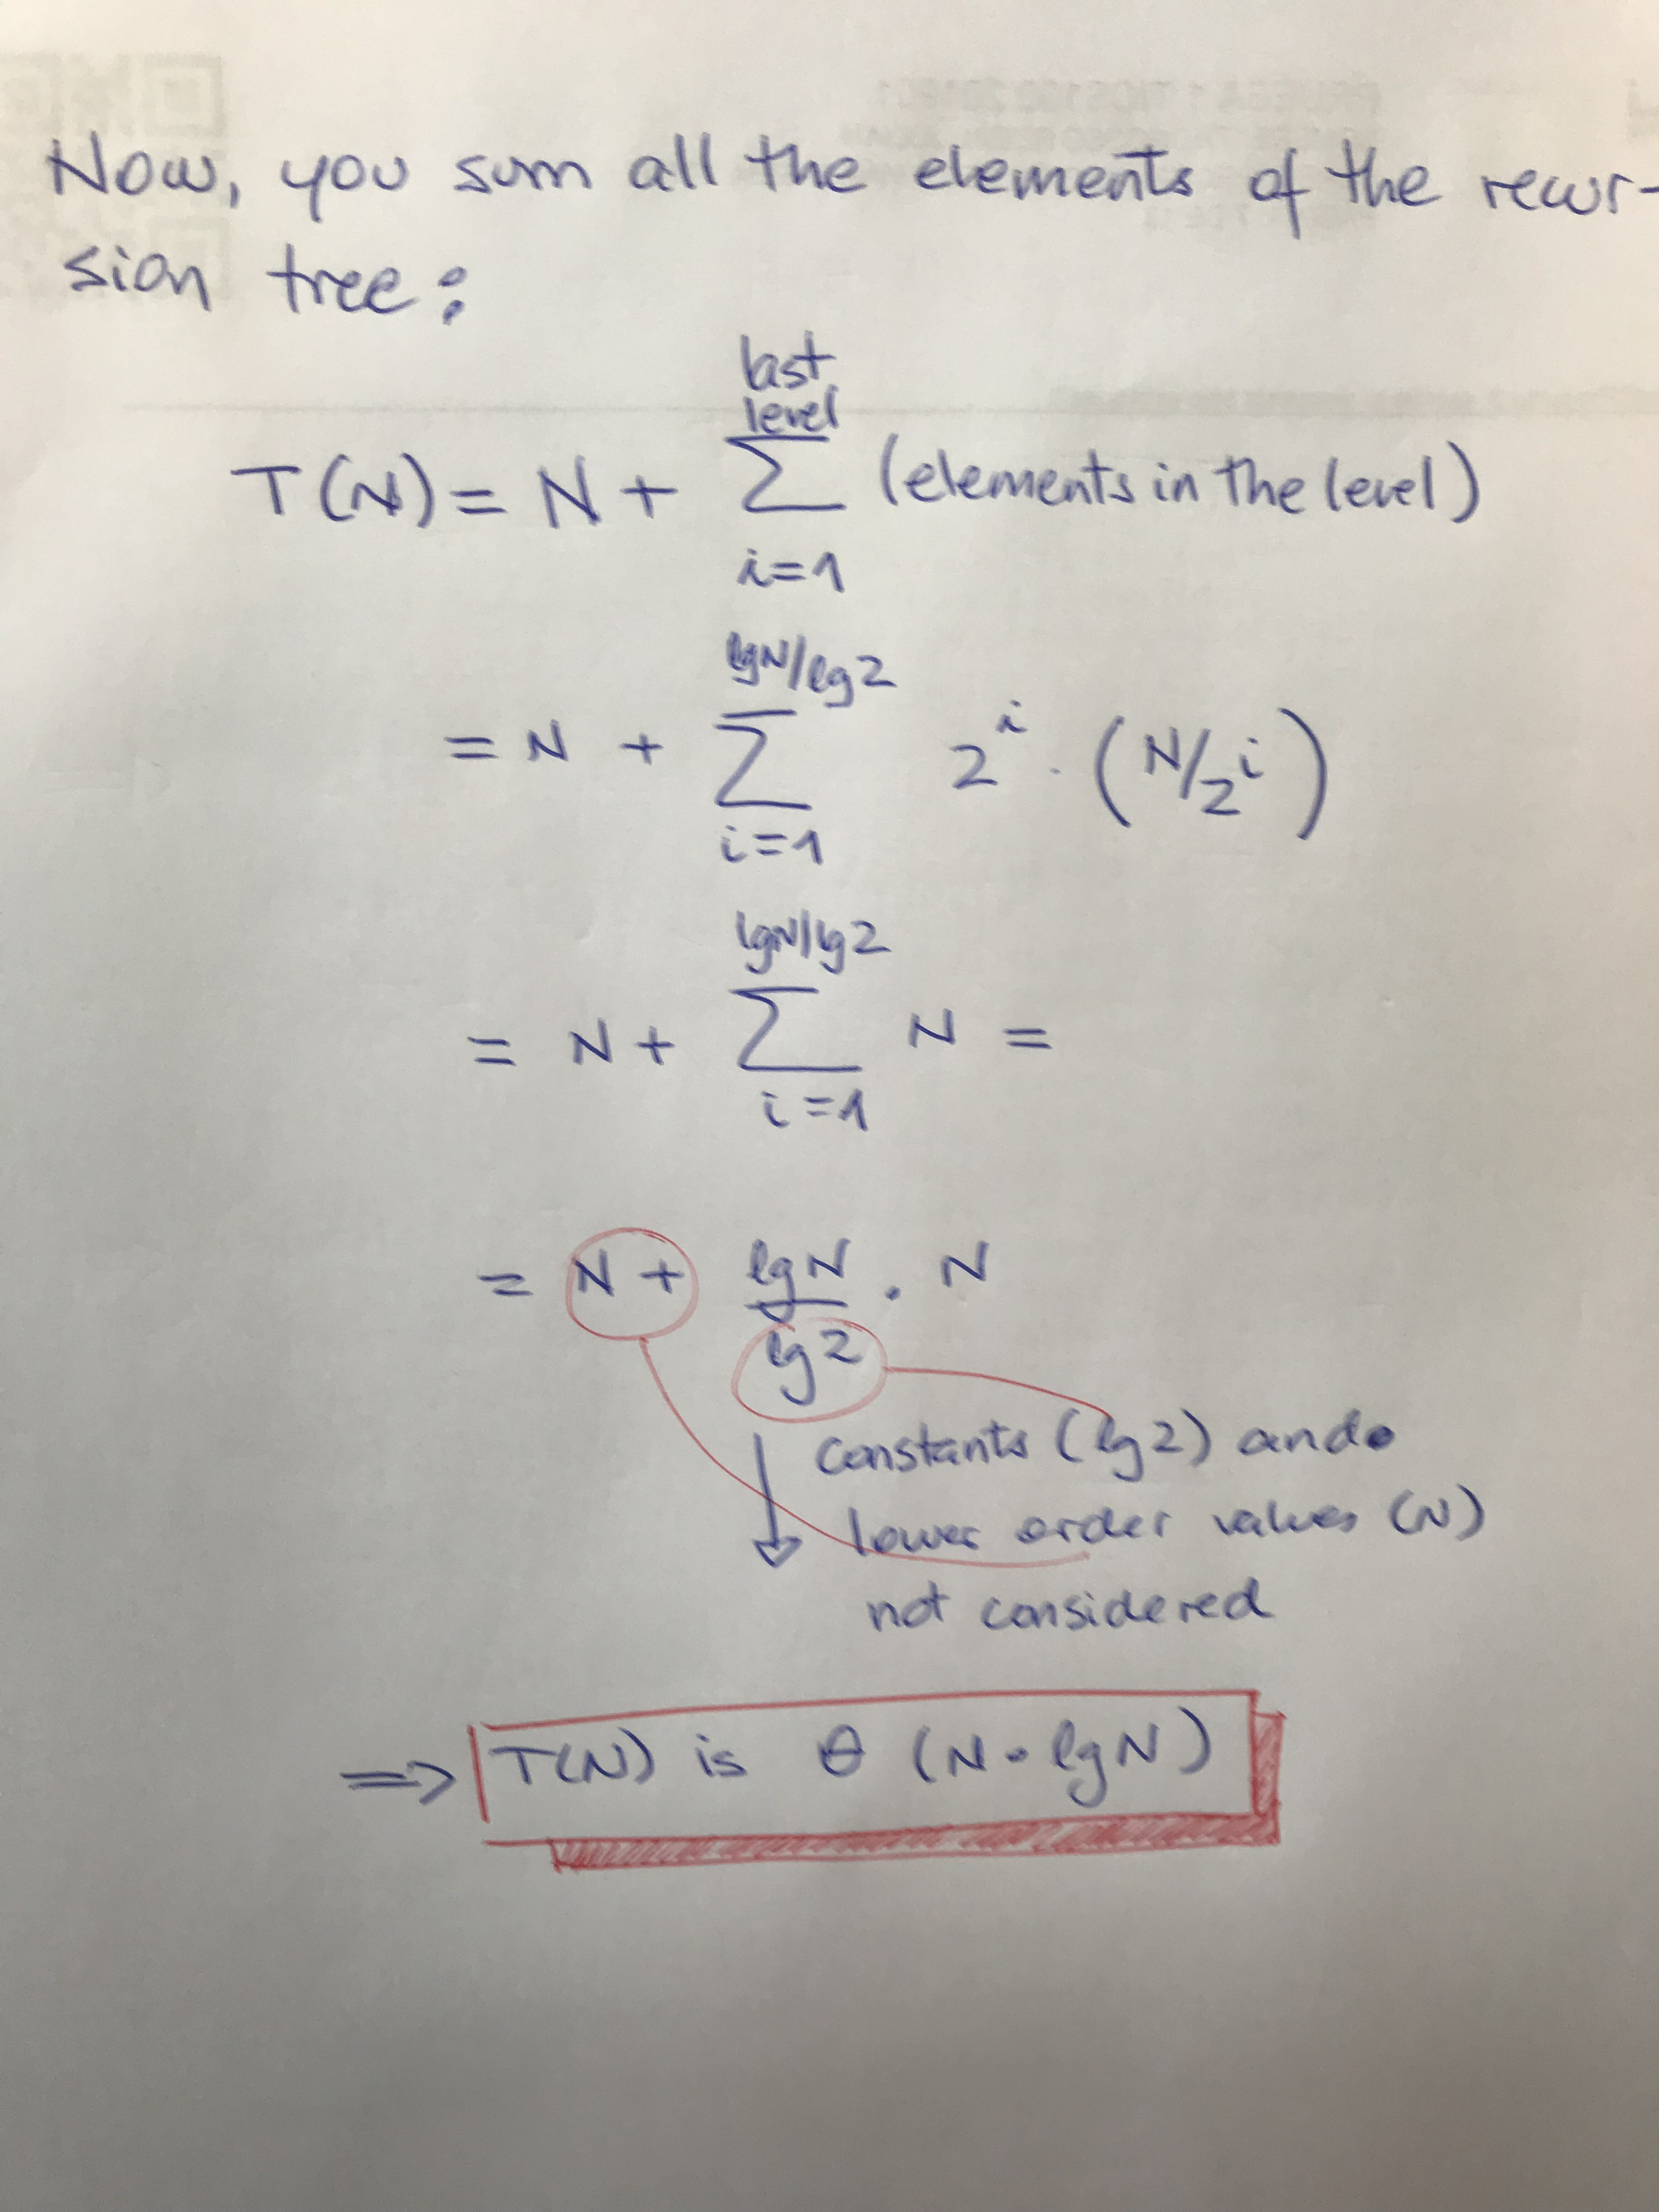 Now, you sum all the elements of the recur-
sion tree:
last
level
T(N) = N + ∑ (elements in the level)
i=1
lgN/lg2
= N + ∑ 2^i · (N/2^i)
i=1
lgN/lg2
= N + ∑ N =
i=1
= N + lgN/lg2 · N
constants (lg2) and
lower order values (N)
not considered
⇒ T(N) is θ (N · lgN)